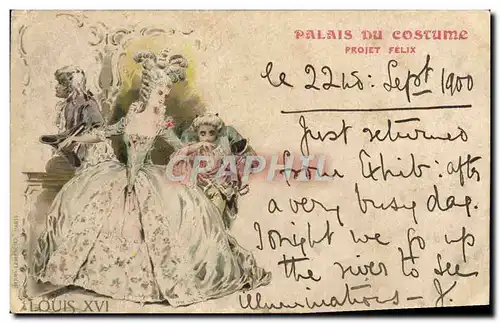 PALAIS DU COSTUME
PROJET FÉLIX
le 22nd: Sept 1900
Just returned
from Exhib: after
a very busy day.
Tonight we go up
the river to see
illuminations - J.
LOUIS XVI
CPARAMA